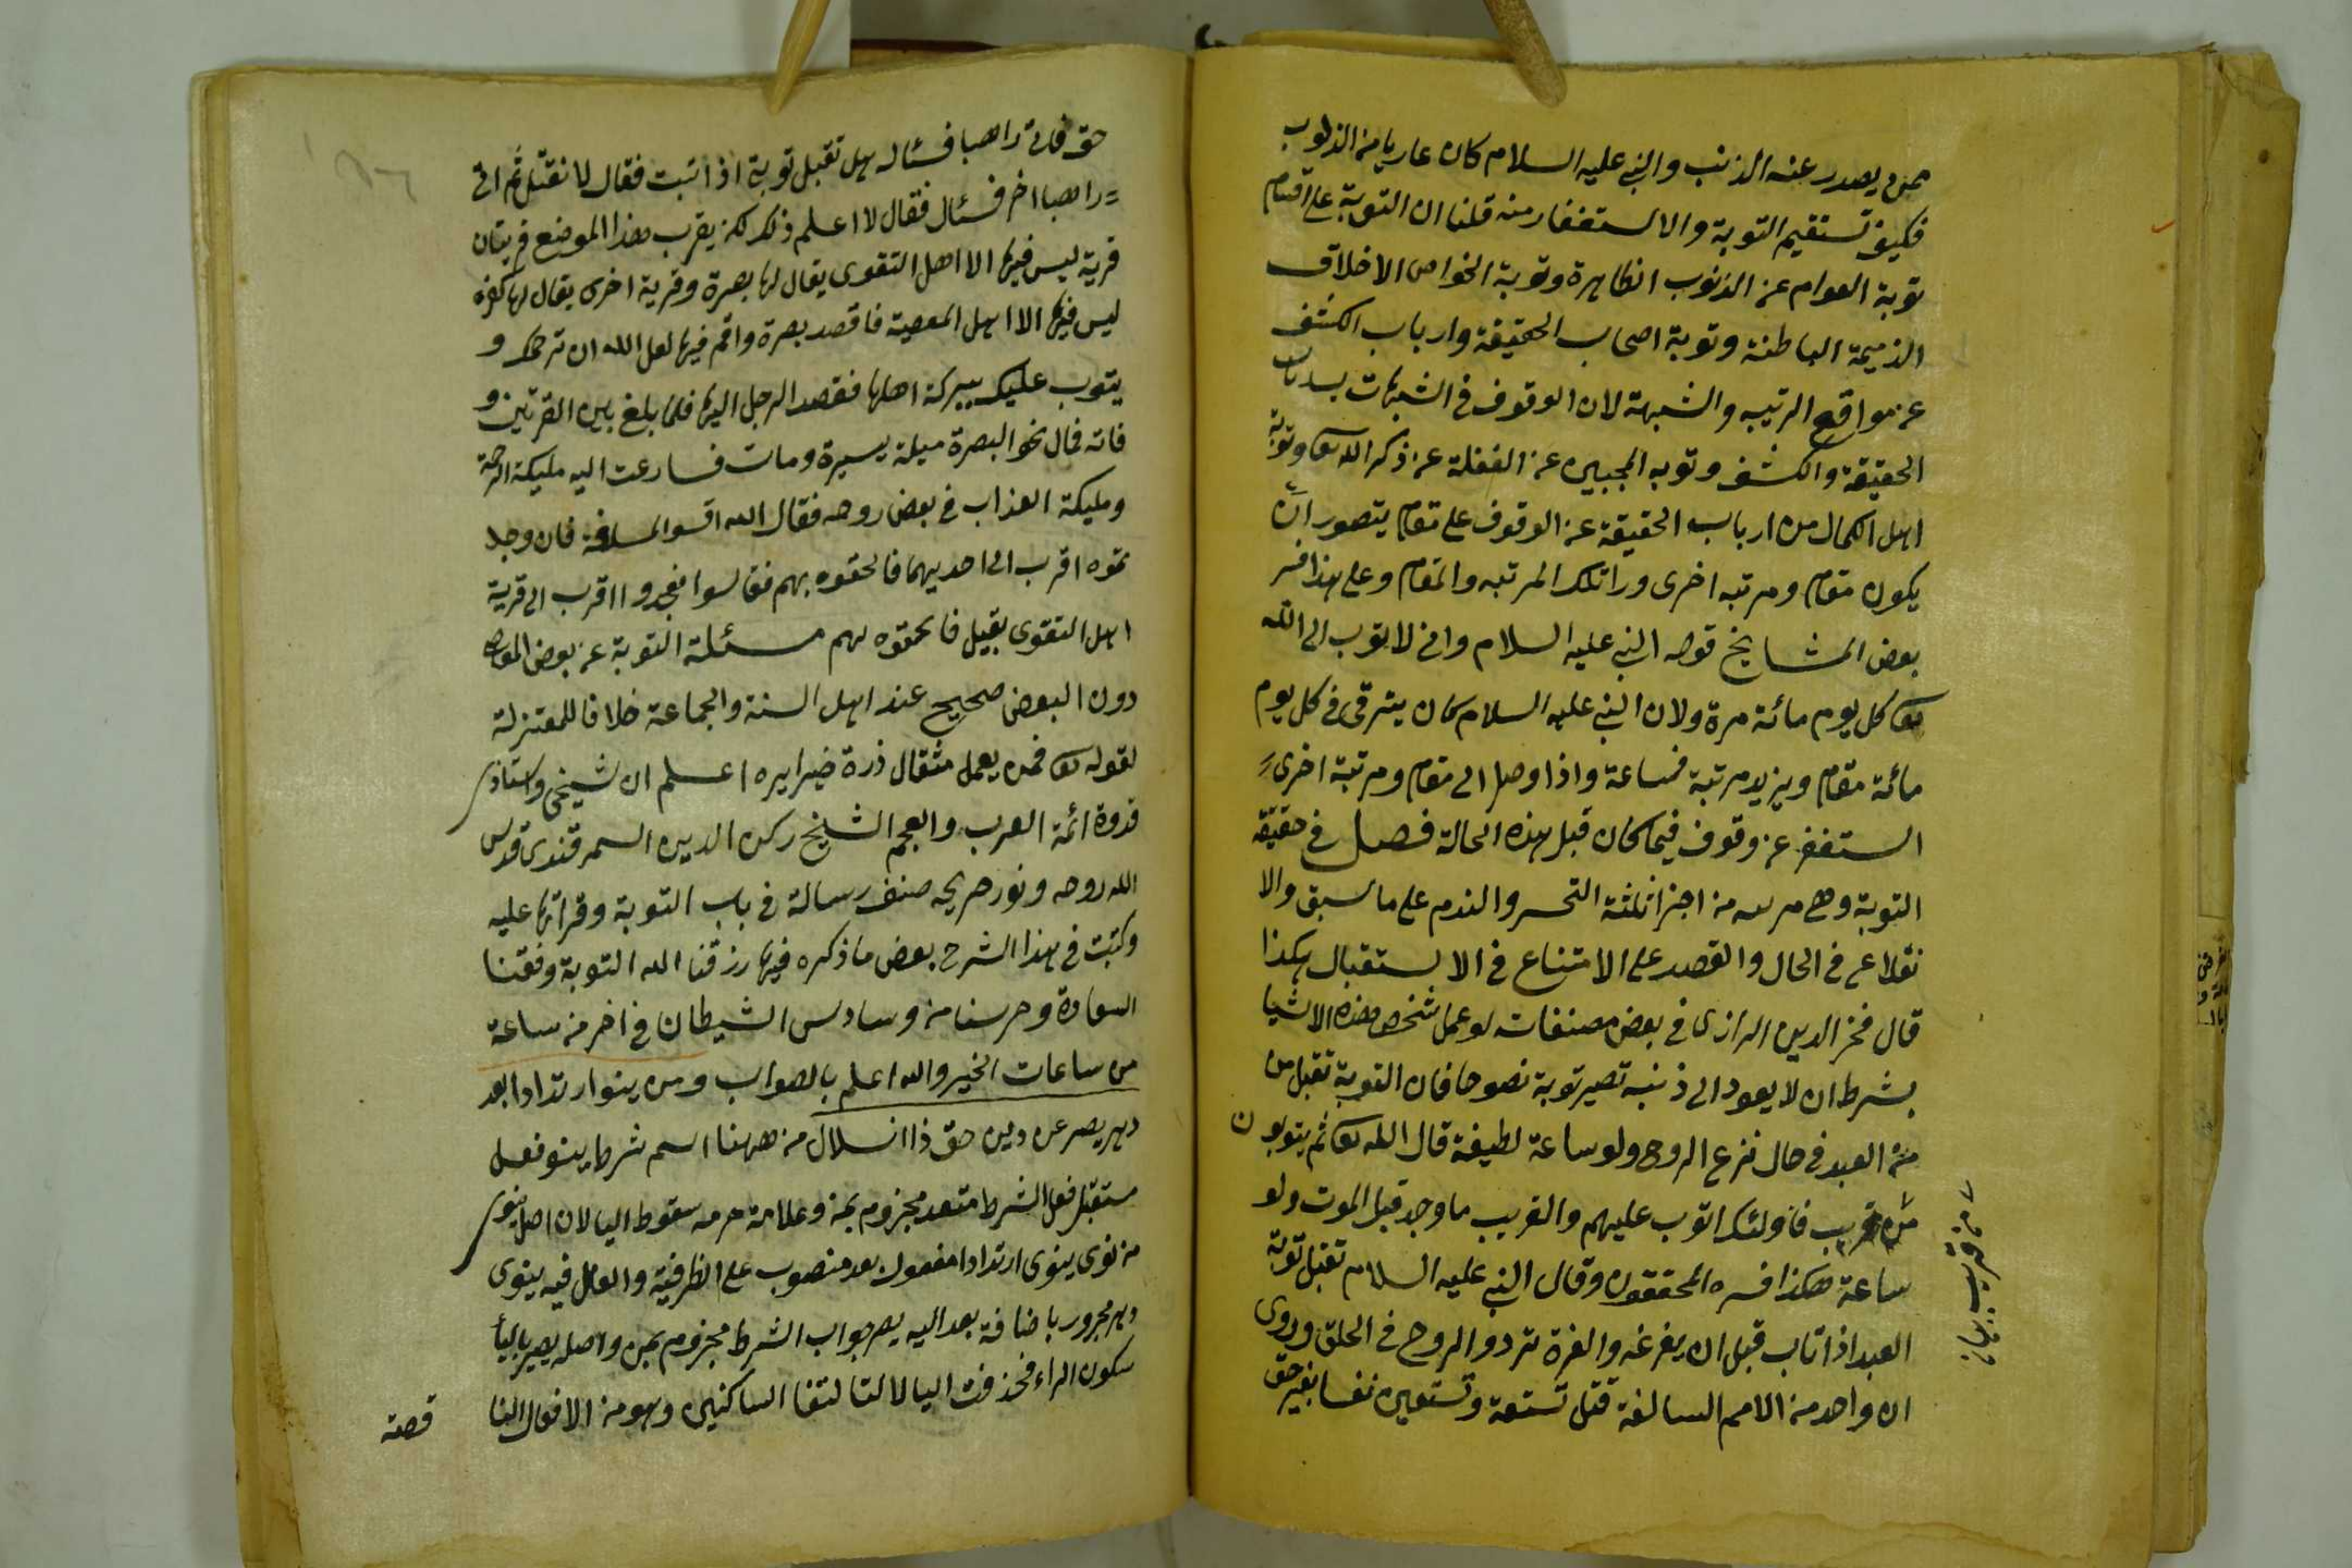 ممن يصدر عنه الذنب والنبى عليه السلام كان عاريا من الذنوب
فكيف تستقيم التوبة والاستغفار منه قلنا ان التوبة على اقسام
توبة العوام عن الذنوب الظاهرة وتوبة الخواص الاخلاق
الذميمة الباطنة وتوبة اصحاب الحقيقة وارباب الكشف
عن مواقع الرتيب والشبهة لان الوقوف فى الشبهات
الحقيقة والكشف وتوبه المحبين عن الغفلة عن ذكر الله تعا وتوبة
اهل الكمال من ارباب الحقيقة عن الوقوف على مقام يتصور ان
يكون مقام ومرتبه اخرى ورا تلك المرتبه والمقام وعلى هذا فسر
بعض المشايخ قوله النبى عليه السلام وانى لا توب الى الله
تعا كل يوم مائة مرة ولان النبى عليه السلام كان يترقى فى كل يوم
مائة مقام ويزيد مرتبة فساعة واذا وصل الى مقام ومرتبة اخرى
استغفر عن وقوف فيما كان قبل هذه الحالة فصل فى حقيقة
التوبة وهى من اجزا ثلثة التحسر والندم على ما سبق والا
نقلاع فى الحال والقصد على الامتناع فى الاستقبال هكذا
قال فخر الدين الرازى فى بعض مصنفاته لو عمل شخص هذه الاشيا
بشرط ان لا يعود الى ذنبه تصير توبة نصوحا فان التوبة تقبل من
العبد فى حال نزع الروح ولو ساعة لطيفة قال الله تعا ثم يتوبون
من قريب فاولئك اتوب عليهم والقريب ما وجد قبل الموت ولو
ساعة هكذا فسره المحققون وقال النبى عليه السلام تقبل توبة
العبد اذا تاب قبل ان يغرغه والغرة تردد الروح فى الحلق وروى
ان واحد من الامم السالفة قتل تسعة وتسعين نفسا بغير حق
من قريب
حق فاتى راهبا فسئاله هل تقبل توبتى اذا تبت فقال لا تقبل ثم اتى
راهبا اخر فسئال فقال لا اعلم ذلك لكن يقرب هذا الموضع قريتان
قرية ليس فيها الا اهل التقوى يقال لها بصرة وقرية اخرى يقال لها كفره
ليس فيها الا اهل المعصية فاقصد بصرة واقم فيها لعل الله ان ترحمك و
يتوب عليك ببركة اهلها فقصد الرجل اليها فلما بلغ بين القريتين و
فاته فمال نحو البصرة ميلة يسيرة ومات فسارعت اليه مليكة الرحمة
ومليكة العذاب فى بعض روحه فقال الله اقسوا لمسافة فان وجد
تموه اقرب الى احديهما فالحقوه بهم فقالسوا فجدوا اقرب الى قرية
اهل التقوى بقيل فالحقوه لهم مسئلة التوبة عن بعض المعاصى
دون البعض صحيح عند اهل السنة والجماعة خلافا للمعتزلة
لقوله تعا فمن يعمل مثقال ذرة خيرا يره اعلم ان شيخى واستاذى
قدوة ائمة العرب والعجم الشيخ ركن الدين السمرقندى قدس
الله روحه ونور ضريحه صنف رسالة فى باب التوبة وقراتها عليه
وكتبت فى هذا الشرح بعض ما ذكره فيها رزقنا الله التوبة وفقنا
السعادة وحرسنا من وساوس الشيطان فى اخر من ساعة
من ساعات الخير والله اعلم بالصواب ومن ينوا ارتدادا بعد
دهر يصر عن دين حق ذا انسلال من ههنا اسم شرط ينو فعل
مستقبل فعل الشرط متعد مجزوم بمن وعلامة جزمه سقوط اليا لان اصل ينوى
من نوى ينوى ارتدادا مفعول بعد منصوب على الظرفية والعامل فيه ينوى
دهر مجرور باضافة بعد اليه يصر جواب الشرط مجزوم بمن واصله يصير باليأ
سكون الراء فحذفت اليا لالتقا الساكنين وهو من الافعال النا
قصة